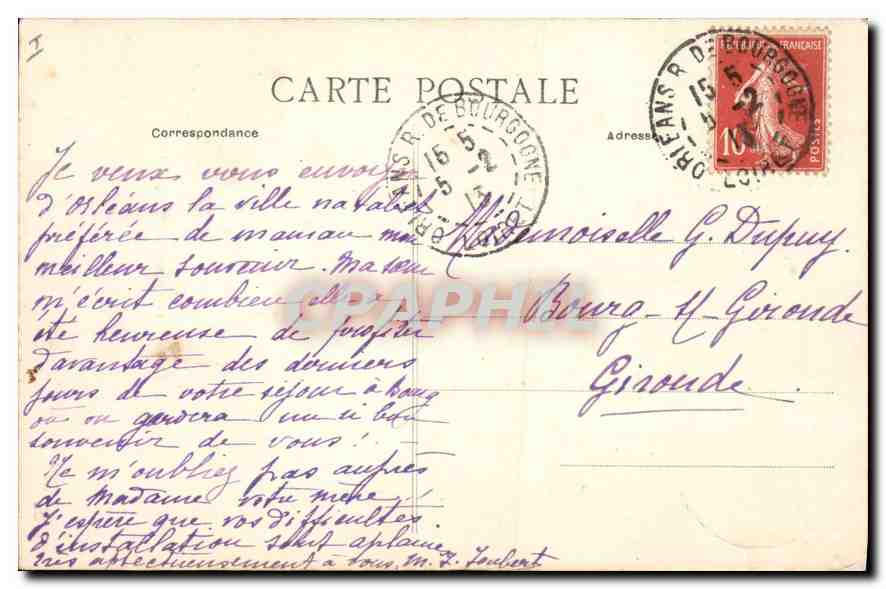 I
CARTE POSTALE
Correspondance
Adresse
RÉPUBLIQUE FRANÇAISE
10
POSTES
ORLEANS R. DE BOURGOGNE
15 5
5 - 2
LOIRET
ORLEANS R. DE BOURGOGNE
15 5
5 - 2
13
LOIRET
Je veux vous envoyer
d'Orléans la ville natale et
préférée de maman mon
meilleur souvenir. Ma sœur
m'écrit combien elle a
été heureuse de profiter
davantage des derniers
jours de votre séjour à Bourg
où on gardera un si bon
souvenir de vous !
Ne m'oubliez pas auprès
de Madame votre mère !
J'espère que vos difficultés
d'installation sont aplanies
très affectueusement à vous, M. J. Joubert
Mademoiselle G. Dupuy
Bourg s/ Gironde
Gironde
CPAPHIL